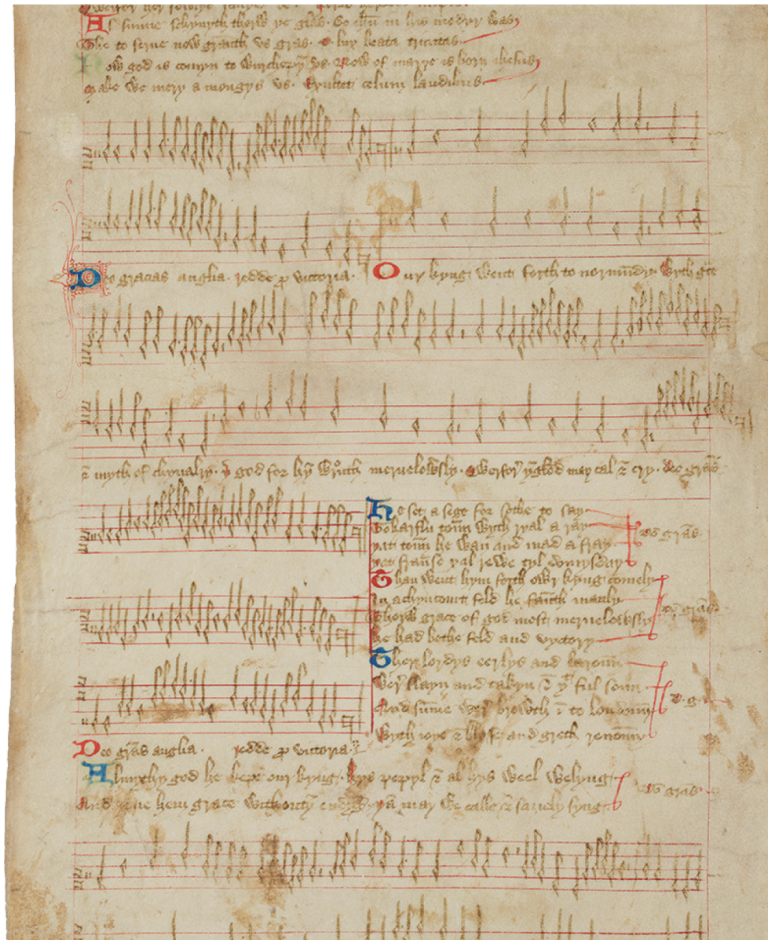 As sunne schynyth thorw ye glas. So ihu in his modyr was
The to serue now graunth vs gras. O lux beata trinitas
Now god is comyn to wurchepyn vs. Now of marye is born ihesus
Make we mery amongys vs. Exultet celum laudibus
Deo gracias anglia. redde p victoria. Owr kyng went forth to normandy. wyth grace
& myth of chyualry. god for hym wrouth meruelowsly. Qwerfor ynglond may cal & cry. deo gras
He set a sege for sothe to say
To harflu toun wyth ryal a ray
yat toun he wan and mad a fray
yat fraunse xal rewe tyl domysday
deo gras
Than went hym forth owr kyng comely
In achyncourt feld he fauth manly
Thorw grace of god most meruelowsly
he had bothe feld and vyctory
deo gras
Ther lordys eerlys and baroun
Wer slayn and takyn & yt ful soun
And sume wer browth in to london
Wyth ioye & blysse and gret renoun
d. g.
Deo gras anglia. redde p victoria.
Almythy god he kepe our kyng. hys pepyl & al hys weel welyng
And yeue hem grace withoutyn endyng. yan may we calle & sauely syng
deo gras